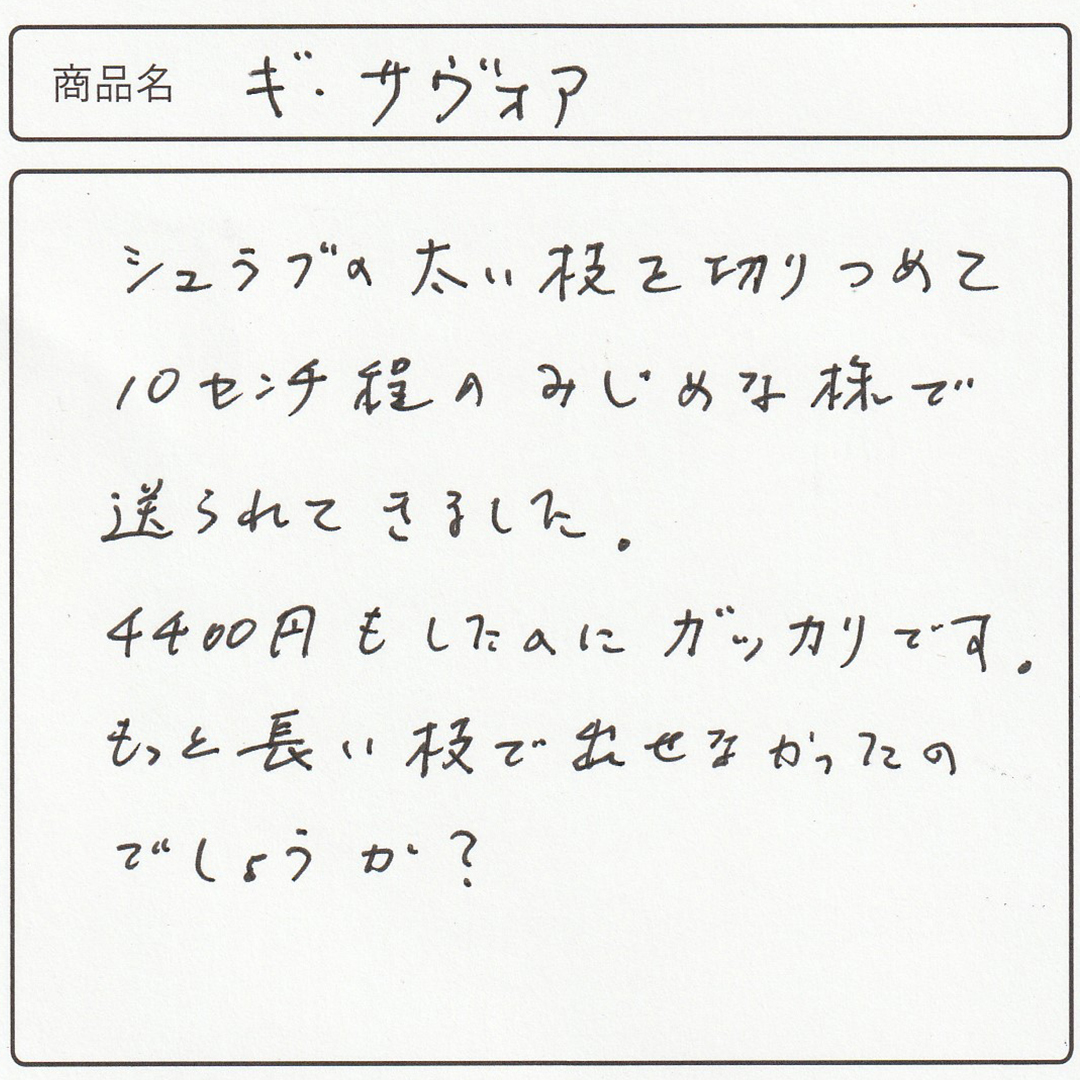 商品名 ギ・サヴォア
シュラブの太い枝を切りつめて
10センチ程のみじめな株で
送られてきました.
4400円もしたのにガッカリです.
もっと長い枝で出せなかったの
でしょうか?